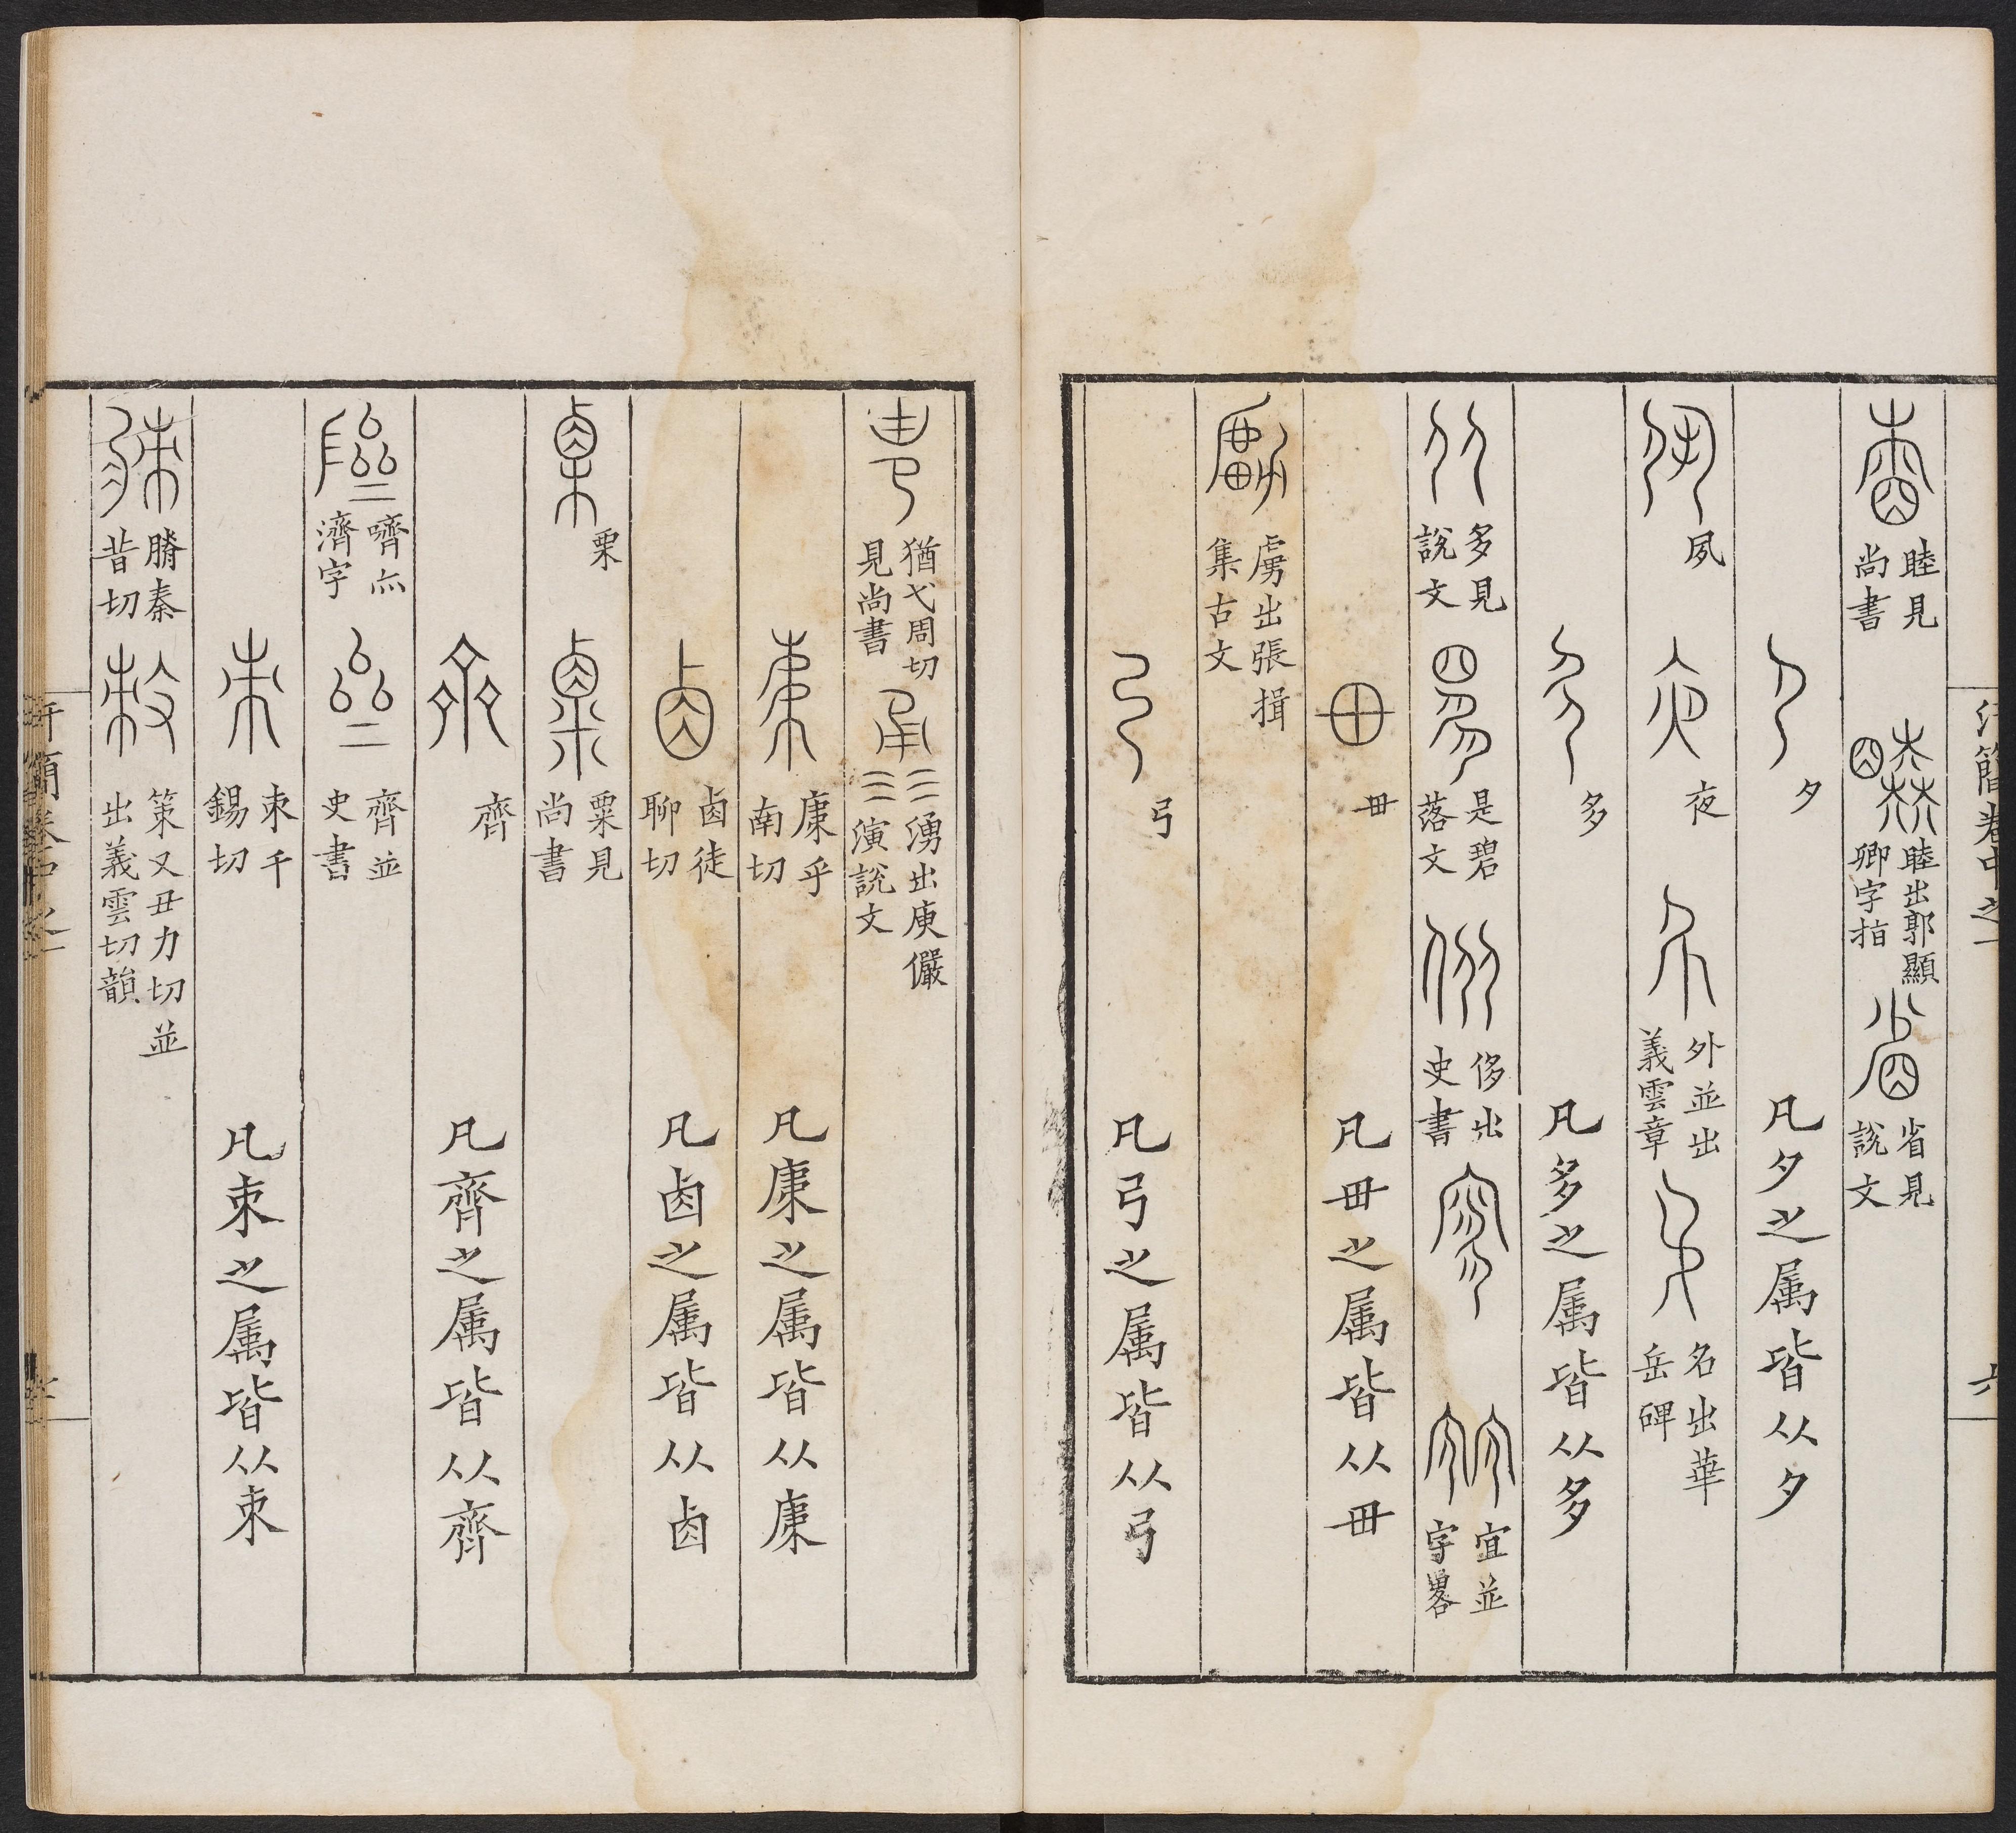 汗簡卷中之一 六
睦見尚書 睦出郭顯卿字指 省見說文
夕 凡夕之属皆从夕
夙 夜 外並出義雲章 名出華岳碑
多 凡多之属皆从多
多見說文 是碧落文 侈出史書 宜並字畧
毌 凡毌之属皆从毌
虜出張揖集古文
弓 凡弓之属皆从弓
猶弋周切見尚書 湧出庾儼演說文
康乎南切 凡康之属皆从康
卤徒聊切 凡卤之属皆从卤
栗 粟見尚書
齊 凡齊之属皆从齊
嚌亦濟字 齊並史書
朿千錫切 凡朿之属皆从朿
膌秦昔切 策又丑力切並出義雲切韻